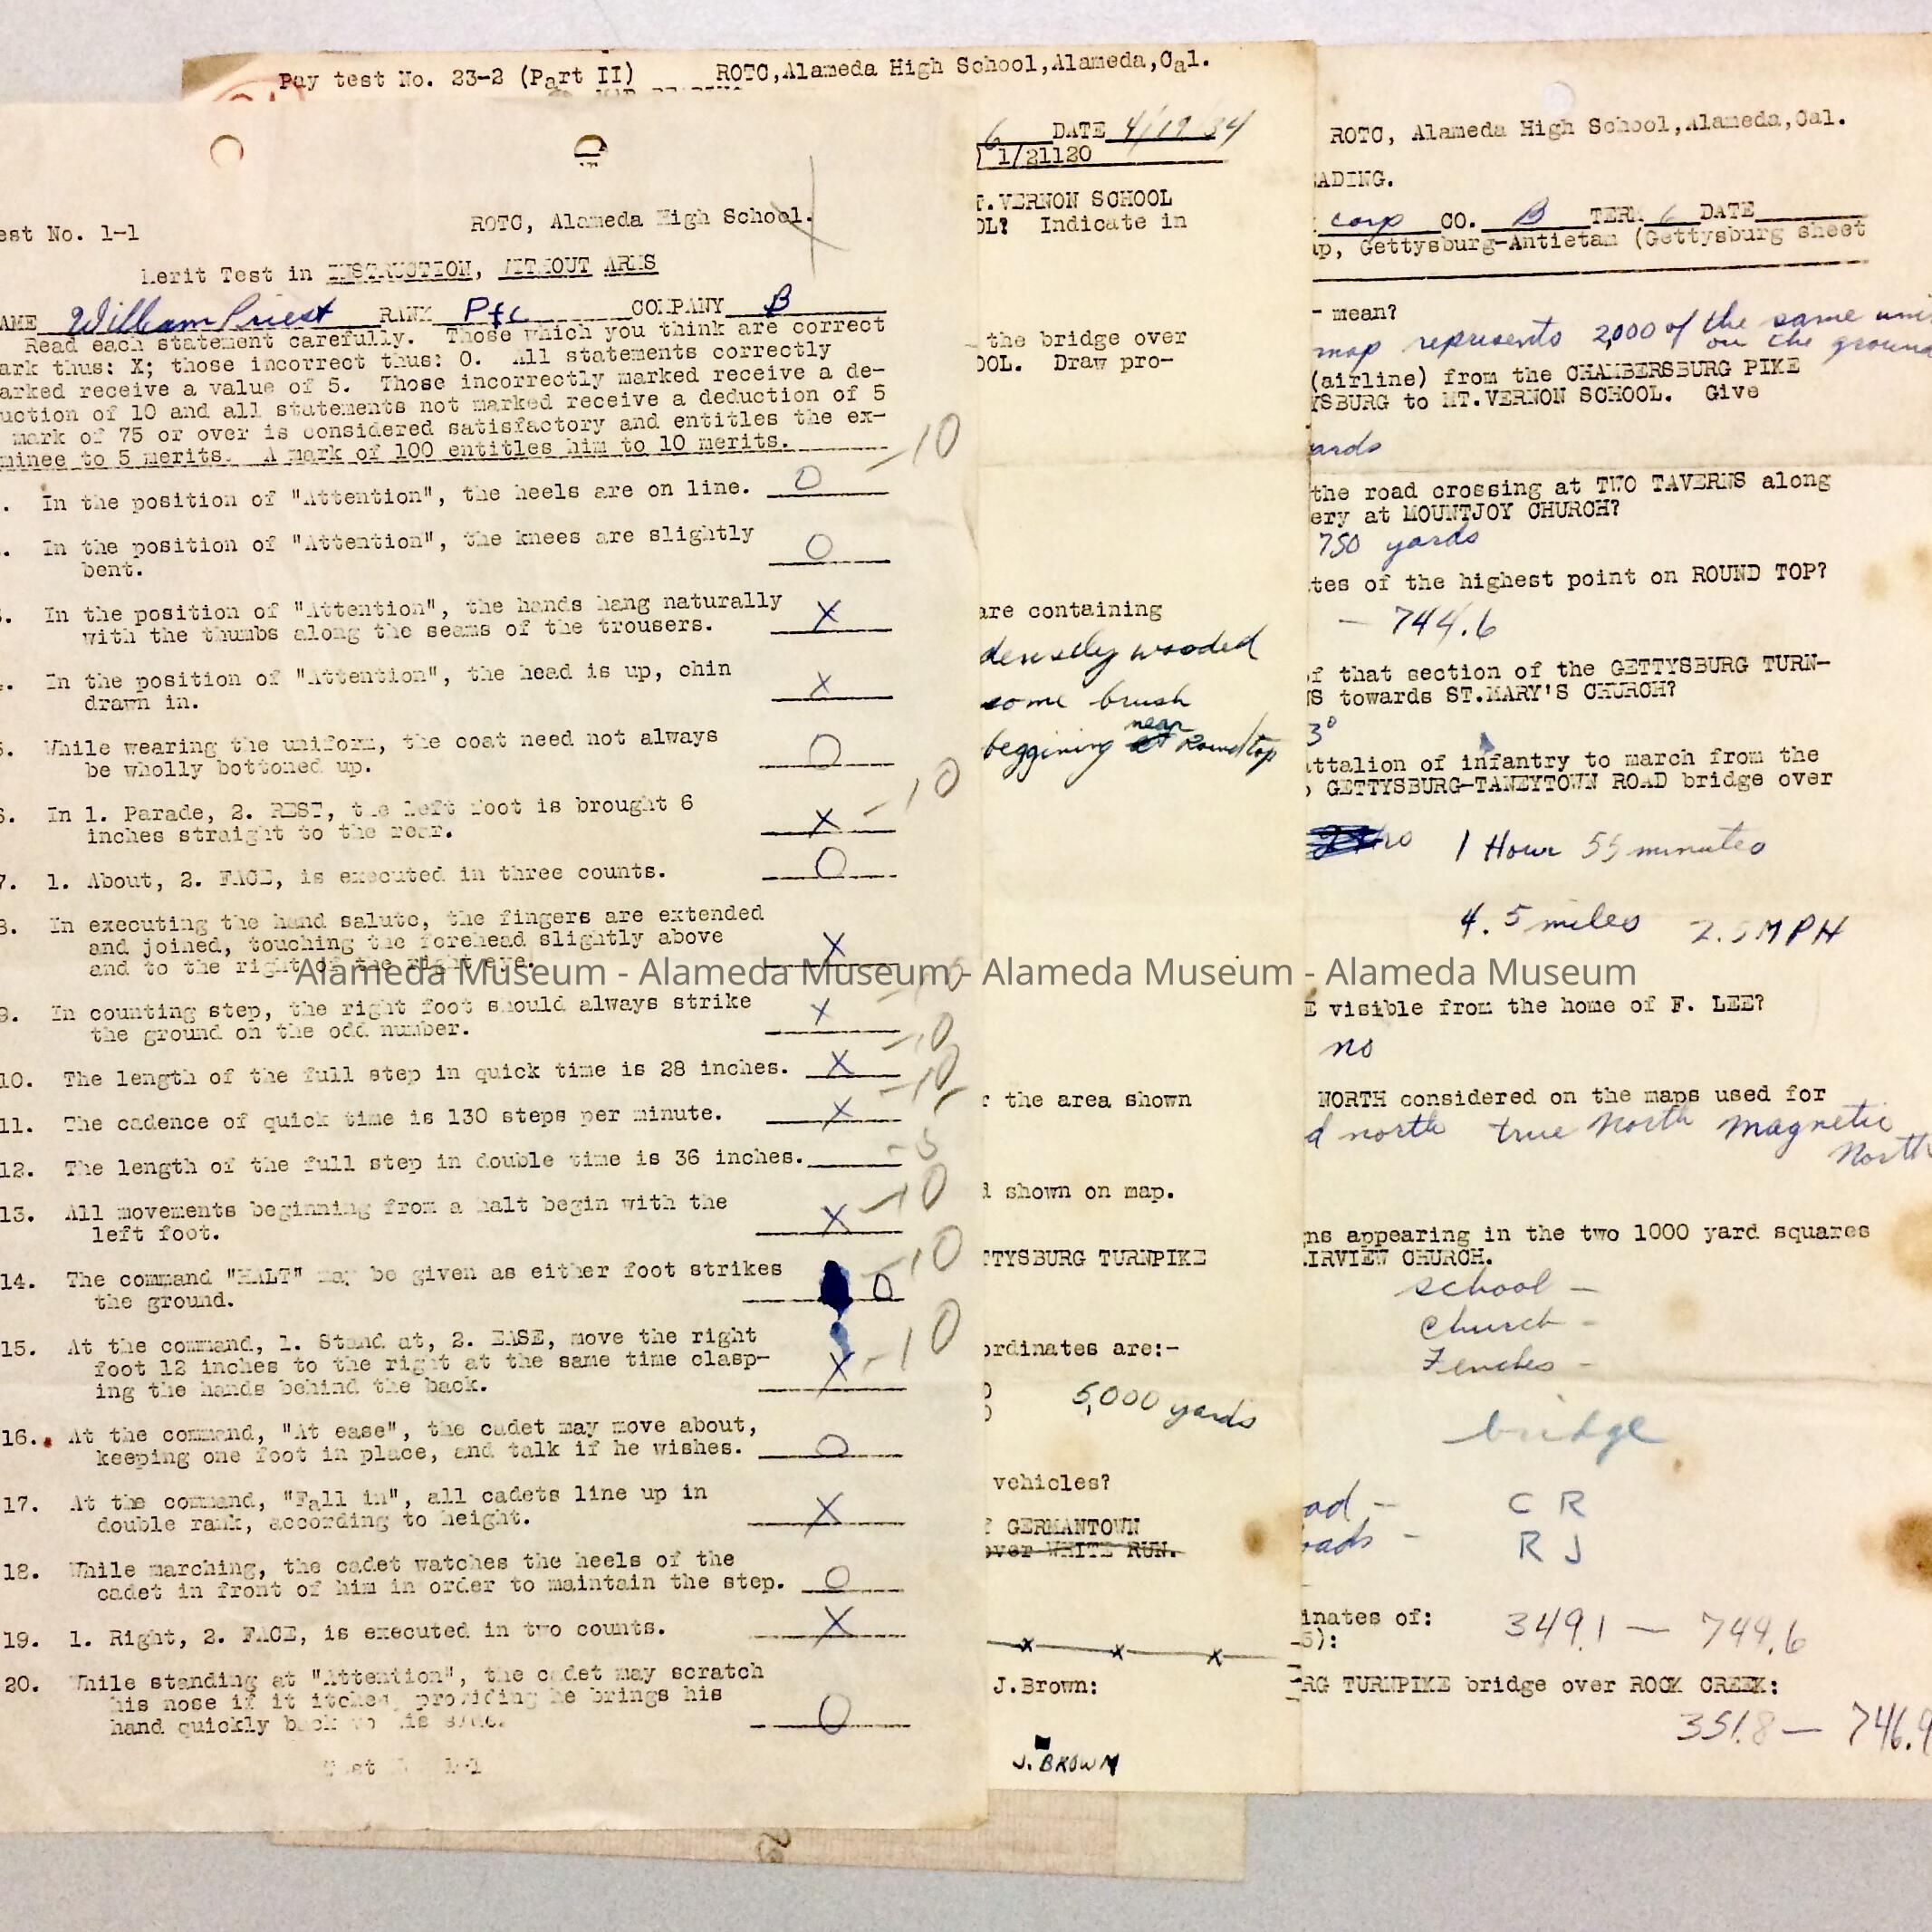 Pay test No. 23-2 (Part II) ROTC,Alameda High School,Alameda,Cal.
est No. 1-1
ROTC, Alameda High School.
Merit Test in INSTRUCTION, WITHOUT ARMS
AME William Priest RANK Pfc COMPANY B
Read each statement carefully. Those which you think are correct
ark thus: X; those incorrect thus: O. All statements correctly
arked receive a value of 5. Those incorrectly marked receive a de-
uction of 10 and all statements not marked receive a deduction of 5
mark of 75 or over is considered satisfactory and entitles the ex-
minee to 5 merits. A mark of 100 entitles him to 10 merits.
-10
. In the position of "Attention", the heels are on line. O
. In the position of "Attention", the knees are slightly
bent. O
. In the position of "Attention", the hands hang naturally
with the thumbs along the seams of the trousers. X
. In the position of "Attention", the head is up, chin
drawn in. X
5. While wearing the uniform, the coat need not always
be wholly bottoned up. O
6. In 1. Parade, 2. REST, the left foot is brought 6
inches straight to the rear. X -10
7. 1. About, 2. FACE, is executed in three counts. O
8. In executing the hand salute, the fingers are extended
and joined, touching the forehead slightly above
and to the right of the right eye. X
9. In counting step, the right foot should always strike
the ground on the odd number. X -10
10. The length of the full step in quick time is 28 inches. X -10
11. The cadence of quick time is 130 steps per minute. X -10
12. The length of the full step in double time is 36 inches. -5
13. All movements beginning from a halt begin with the
left foot. X -10
14. The command "HALT" may be given as either foot strikes
the ground. O -10
15. At the command, 1. Stand at, 2. EASE, move the right
foot 12 inches to the right at the same time clasp-
ing the hands behind the back. X -10
16. At the command, "At ease", the cadet may move about,
keeping one foot in place, and talk if he wishes. O
17. At the command, "Fall in", all cadets line up in
double rank, according to height. X
18. While marching, the cadet watches the heels of the
cadet in front of him in order to maintain the step. O
19. 1. Right, 2. FACE, is executed in two counts. X
20. While standing at "Attention", the cadet may scratch
his nose if it itches, providing he brings his
hand quickly back to his side. O
6 DATE 4/19/34
1/21120
T.VERNON SCHOOL
OL? Indicate in
the bridge over
OOL. Draw pro-
are containing
denselly wooded
some brush
beggining near Roundtop
r the area shown
d shown on map.
TTYSBURG TURNPIKE
ordinates are:-
5,000 yards
vehicles?
f GERMANTOWN
over WHITE RUN.
J.Brown:
J. BROWN
ROTC, Alameda High School,Alameda,Cal.
ADING.
corp CO. B TERM 6 DATE
ap, Gettysburg-Antietam (Gettysburg sheet
mean?
map represents 2,000 of the same uni
on the ground
(airline) from the CHAMBERSBURG PIKE
YSBURG to MT.VERNON SCHOOL. Give
ards
the road crossing at TWO TAVERNS along
ery at MOUNTJOY CHURCH?
750 yards
tes of the highest point on ROUND TOP?
- 744.6
of that section of the GETTYSBURG TURN-
S towards ST.MARY'S CHURCH?
3°
attalion of infantry to march from the
GETTYSBURG-TANEYTOWN ROAD bridge over
1 Hour 55 minutes
4.5 miles 2.5 MPH
E visible from the home of F. LEE?
no
NORTH considered on the maps used for
d north true North Magnetic
North
ns appearing in the two 1000 yard squares
IRVIEW CHURCH.
school -
Church -
Fenches -
bridge
ad - C R
oads - R J
inates of:
5): 349.1 - 744.6
RG TURNPIKE bridge over ROCK CREEK:
351.8 - 746.9
Alameda Museum - Alameda Museum - Alameda Museum - Alameda Museum